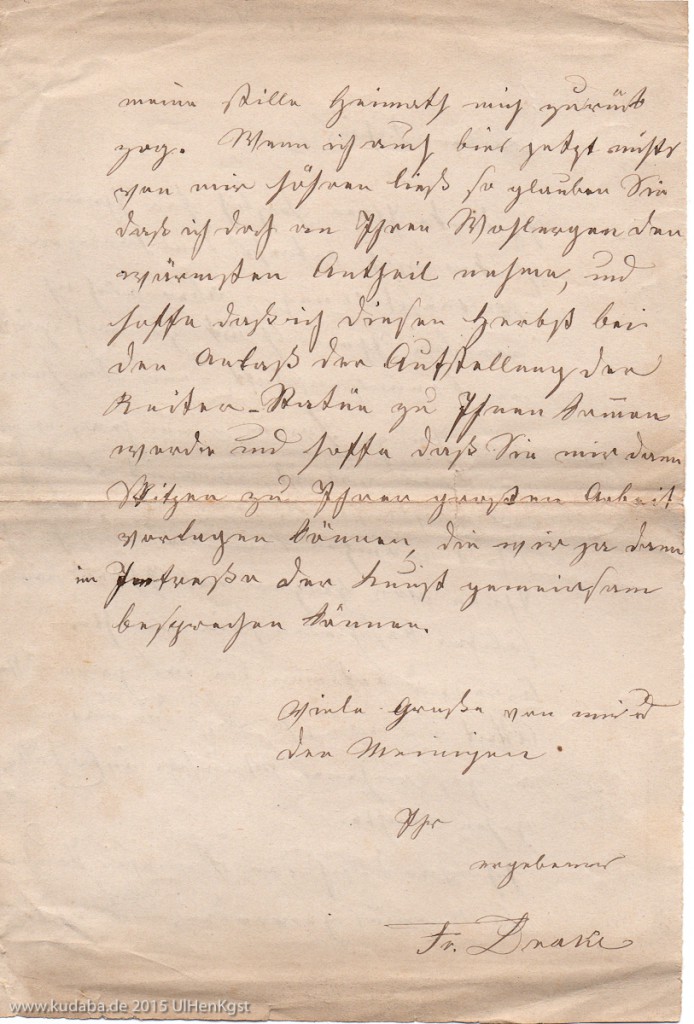 meine stille Heimath mich zurück
zog. Wenn ich auch bies jetzt nichts
von mir höhren ließ so glauben Sie
daß ich doch an Ihren Wohlergen den
wärmsten Antheil nehme, und
hoffe daß ich diesen Herbst bei
den Anlaß der Aufstellung der
Reiter-Statüe zu Ihnen kommen
werde und hoffe daß Sie mir dann
Skitzen zu Ihrer großen Arbeit
vorlegen können, die wir ja dann
im Intreße der Kunst gemeinsam
besprechen können.
Viele Gruße von mir u
den Meinigen.
Ihr
ergebener
Fr. Drake
www.kudaba.de 2015 UlHenKgst